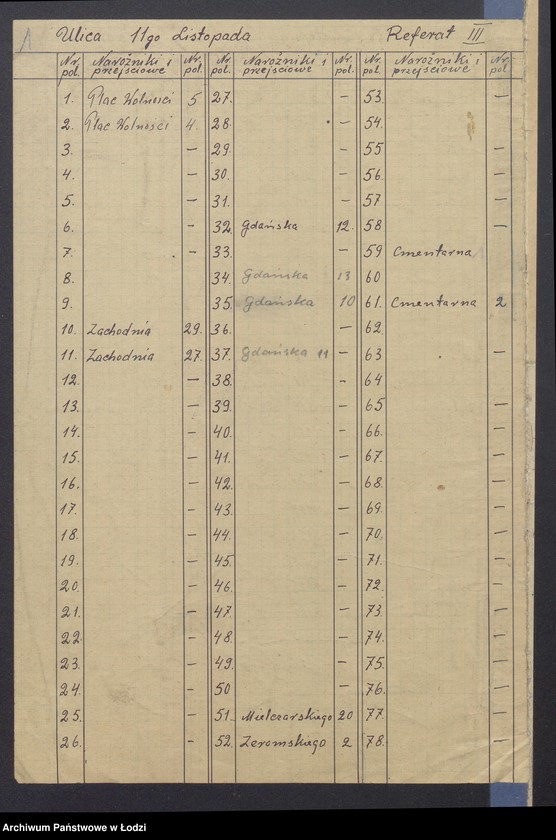 1
Ulica 11go Listopada Referat III
Nr. pol. Narożniki i przejściowe Nr. pol. Nr. pol. Narożniki i przejściowe Nr. pol. Nr. pol. Narożniki i przejściowe Nr. pol.
1. Plac Wolności 5 27. — 53. —
2. Plac Wolności 4. 28. — 54.
3. — 29. — 55 —
4. — 30. — 56. —
5. — 31. — 57 —
6. — 32. Gdańska 12. 58 —
7. — 33. — 59 Cmentarna 1
8. 34. Gdańska 13 60
9. 35. Gdańska 10 61. Cmentarna 2
10. Zachodnia 29. 36. — 62.
11. Zachodnia 27. 37. Gdańska 11 — 63 —
12. — 38. — 64
13. — 39. — 65 —
14. — 40. — 66. —
15. — 41. — 67. —
16. — 42. — 68. —
17. — 43. — 69. —
18. — 44. — 70. —
19. — 45. — 71. —
20. — 46. — 72. —
21. — 47. — 73. —
22. — 48. — 74. —
23. — 49. — 75. —
24. — 50 — 76. —
25. — 51. Mielczarskiego 20 77. —
26. — 52. Żeromskiego 2 78. —
Archiwum Państwowe w Łodzi